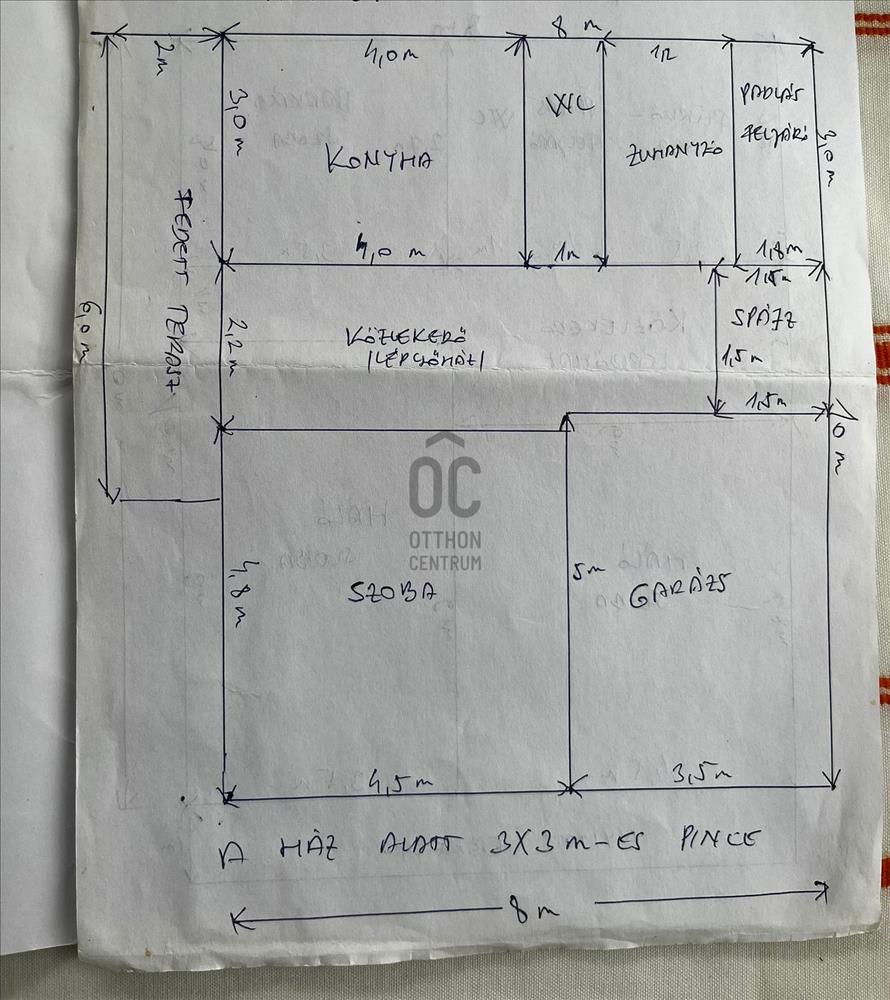 8 m
2m
4,0 m
3,0 m
KONYHA
WC
ZUHANYZÓ
PADLÁS
FELJÁRÓ
3,0 m
4,0 m
1m
1,8m
1,5m
FEDETT TERASZ
6,0 m
2,2 m
KÖZLEKEDŐ
/LÉPCSŐHÁZ/
SPÁJZ
1,5m
1,5m
OC
OTTHON
CENTRUM
4,8 m
SZOBA
5m
GARÁZS
4,5 m
3,5m
A HÁZ ALATT 3X3 m-ES PINCE
8 m